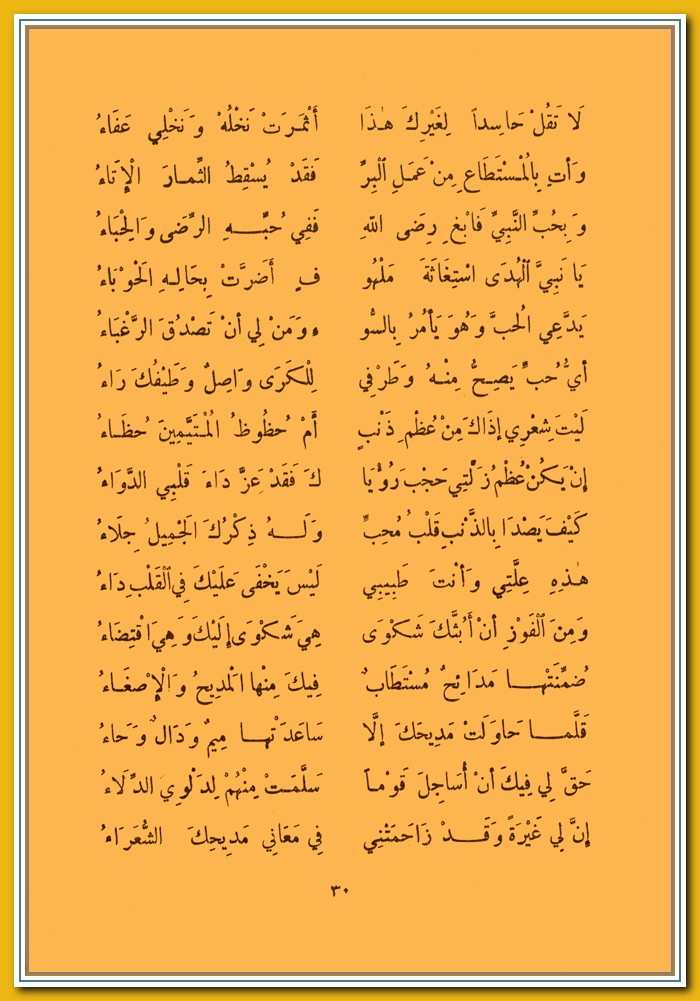 لَا تَقُلْ حَاسِداً لِغَيْرِكَ هٰذَا أَثْمَرَتْ نَخْلُهُ وَنَخْلِي عَفَاءُ
وَأْتِ بِالْمُسْتَطَاعِ مِنْ عَمَلِ ٱلْبِرِّ فَقَدْ يُسْقِطُ الثِّمَارَ الْإِتَاءُ
وَبِحُبِّ النَّبِيِّ فَابْغِ رِضَى اللهِ فَفِي حُبِّهِ الرِّضَى وَالْحِبَاءُ
يَا نَبِيَّ ٱلْهُدَى اسْتِغَاثَةَ مَلْهُو فٍ أَضَرَّتْ بِحَالِهِ الْحَوْبَاءُ
يَدَّعِي الْحُبَّ وَهُوَ يَأْمُرُ بِالسُّو ءِ وَمَنْ لِي أَنْ تَصْدُقَ الرَّغْبَاءُ
أَيُّ حُبٍّ يَصِحُّ مِنْهُ وَطَرْفِي لِلْكَرَى وَاصِلٌ وَطَيْفُكَ رَاءُ
لَيْتَ شِعْرِي إِذَاكَ مِنْ عُظْمِ ذَنْبٍ أَمْ حُظُوظُ الْمُتَيَّمِينَ حُظَاءُ
إِنْ يَكُنْ عُظْمُ زَلَّتِي حَجْبَ رُؤْيَا كَ فَقَدْ عَزَّ دَاءَ قَلْبِي الدَّوَاءُ
كَيْفَ يَصْدَا بِالذَّنْبِ قَلْبُ مُحِبٍّ وَلَهُ ذِكْرُكَ الْجَمِيلُ جِلَاءُ
هٰذِهِ عِلَّتِي وَأَنْتَ طَبِيبِي لَيْسَ يَخْفَى عَلَيْكَ فِي ٱلْقَلْبِ دَاءُ
وَمِنَ ٱلْفَوْزِ أَنْ أَبُثَّكَ شَكْوَى هِيَ شَكْوَى إِلَيْكَ وَهِيَ اقْتِضَاءُ
ضُمِّنَتْهَا مَدَائِحٌ مُسْتَطَابٌ فِيكَ مِنْهَا الْمَدِيحُ وَالْإِصْغَاءُ
قَلَّمَا حَاوَلَتْ مَدِيحَكَ إِلَّا سَاعَدَتْهَا مِيمٌ وَدَالٌ وَحَاءُ
حَقَّ لِي فِيكَ أَنْ أُسَاجِلَ قَوْماً سَلَّمَتْ مِنْهُمْ لِدَلْوِيَ الدِّلَاءُ
إِنَّ لِي غَيْرَةً وَقَدْ زَاحَمَتْنِي فِي مَعَانِي مَدِيحِكَ الشُّعَرَاءُ
٣٠